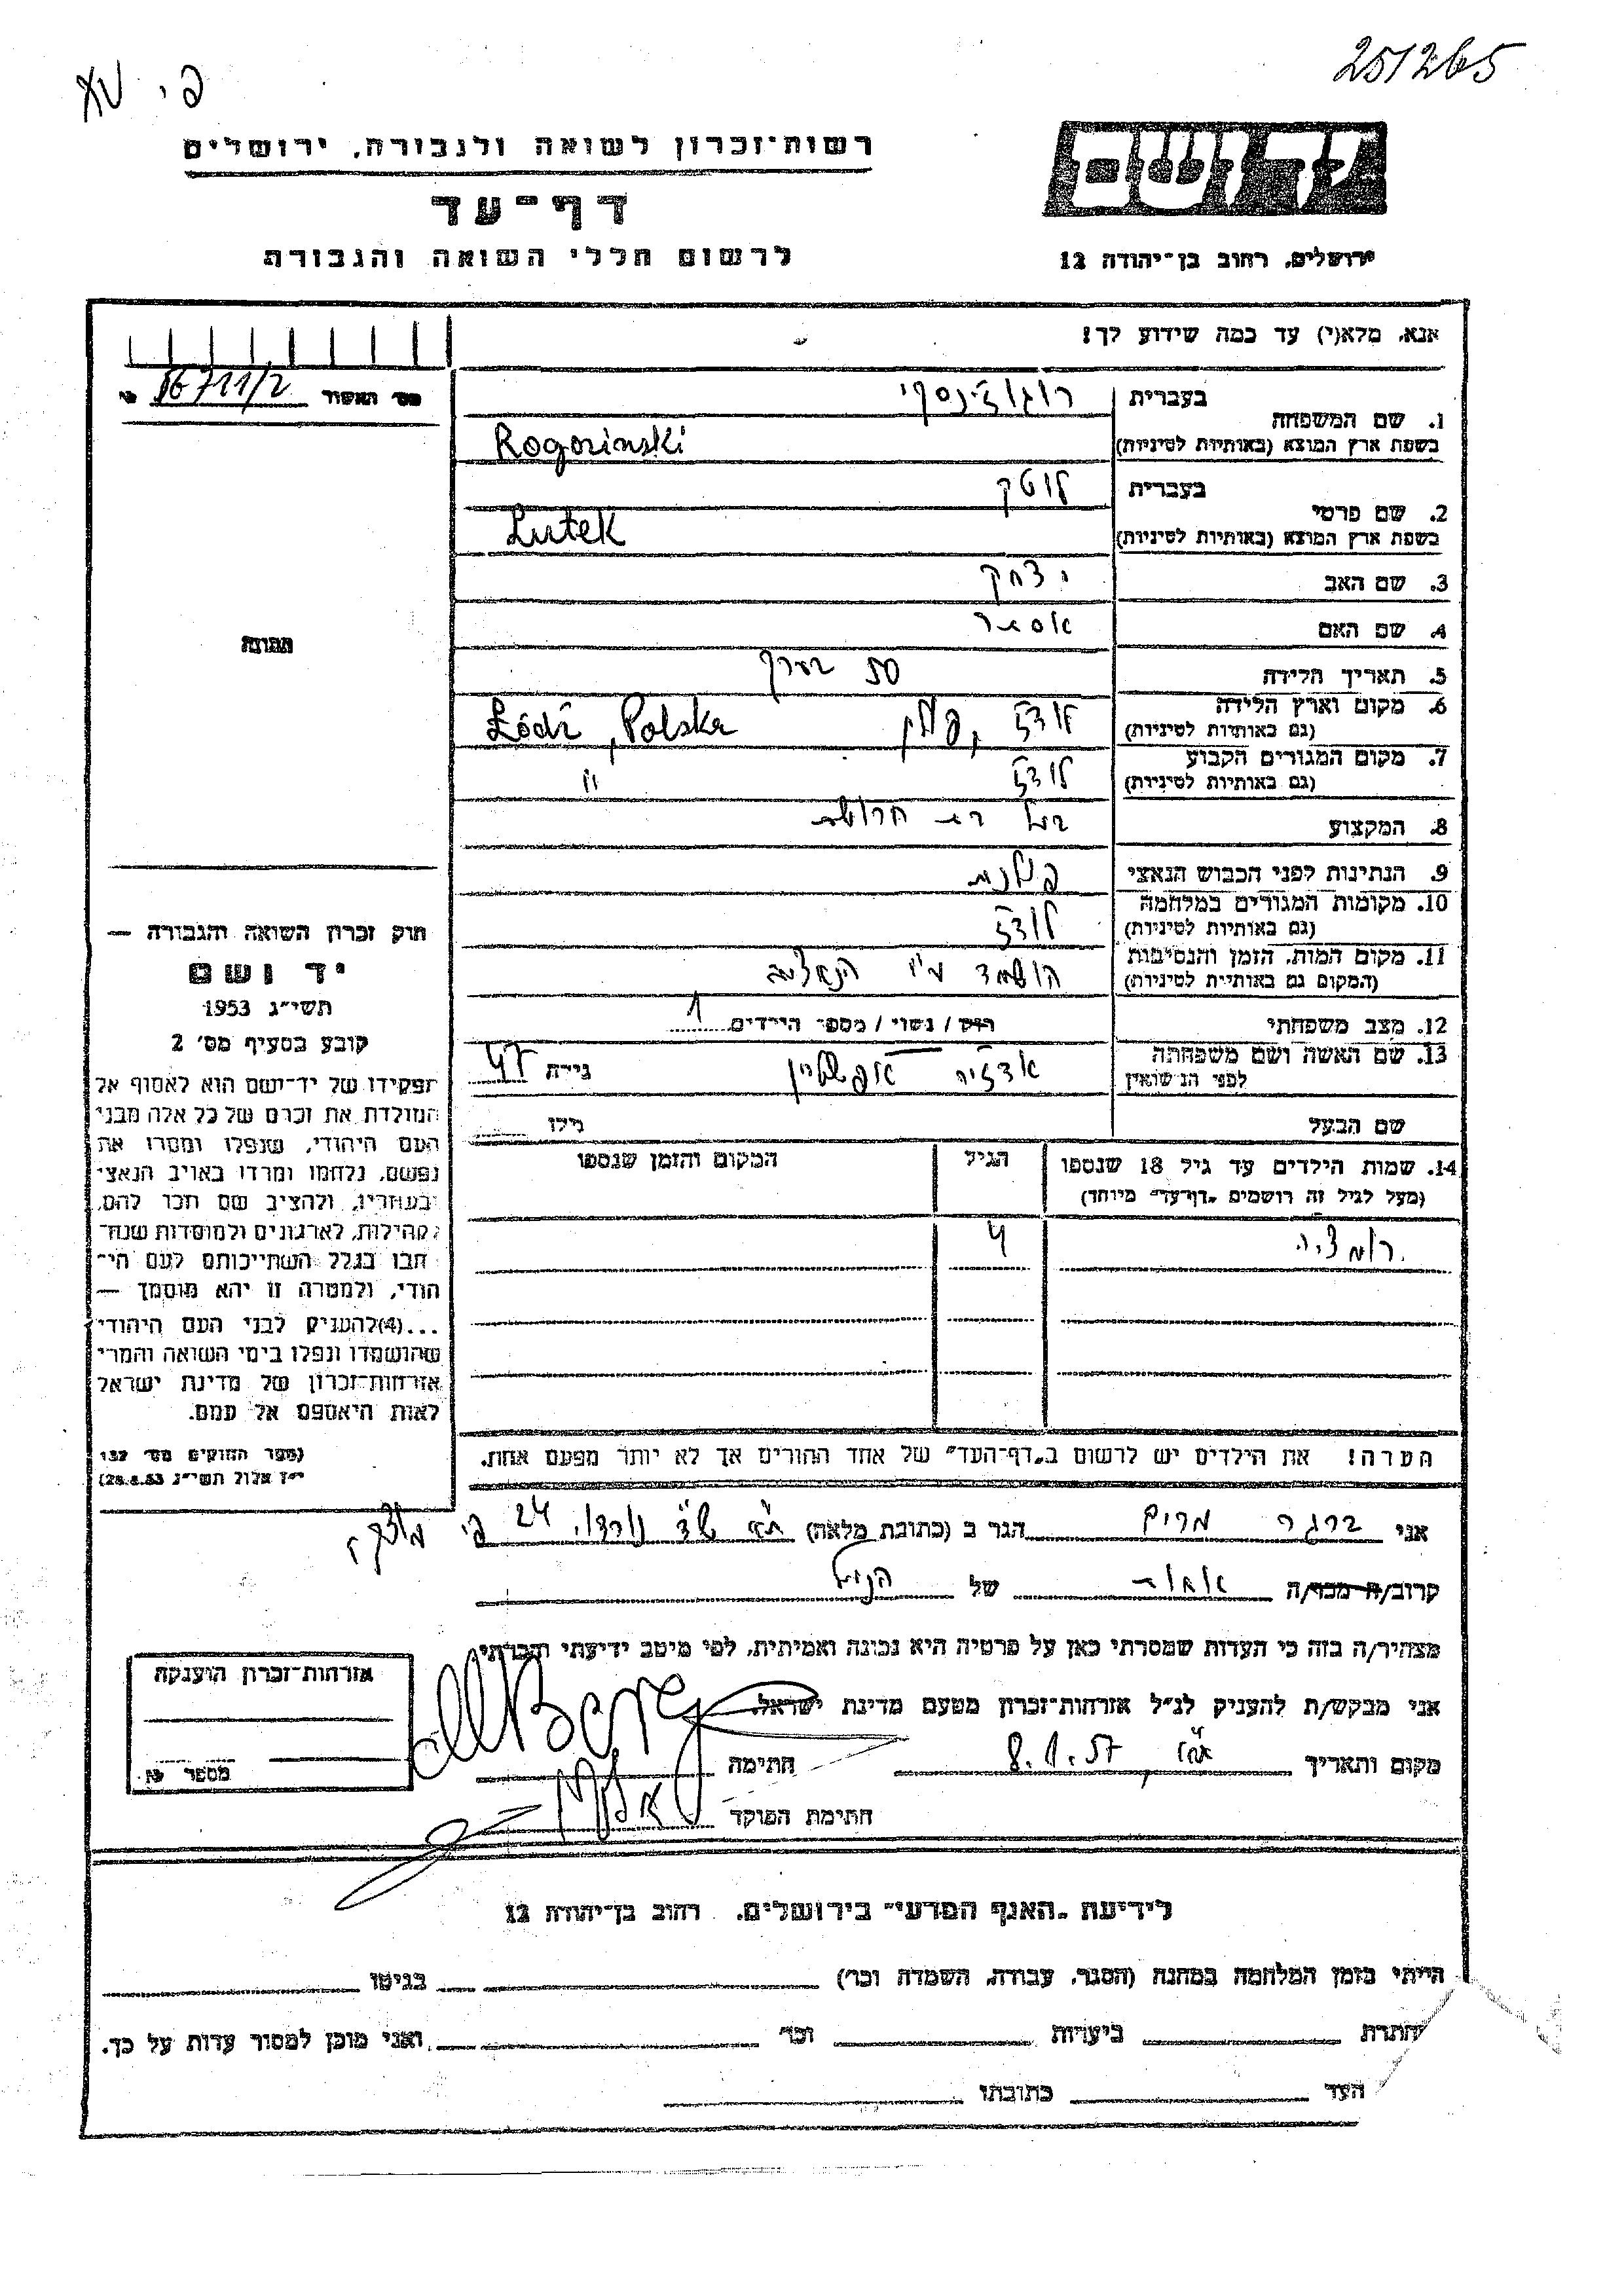 251265
רשות־זכרון לשואה ולגבורה, ירושלים
דף־עד
לרשום חללי השואה והגבורה
יד ושם
ירושלים, רחוב בן־יהודה 12
אנא, מלא(י) עד כמה שידוע לך!
מס' האשור 16711/2
תמונה
1. שם המשפחה
בעברית
רוגוז'ינסקי
בשפת ארץ המוצא (באותיות לטיניות)
Rogozinski
2. שם פרטי
בעברית
לוטק
בשפת ארץ המוצא (באותיות לטיניות)
Lutek
3. שם האב יצחק
4. שם האם אסתר
5. תאריך הלידה 50 בערך
6. מקום וארץ הלידה
(גם באותיות לטיניות)
לודז', פולין Łódź, Polska
7. מקום המגורים הקבוע
(גם באותיות לטיניות)
לודז' "
8. המקצוע בעל בית חרושת
9. הנתינות לפני הכבוש הנאצי פולנית
10. מקומות המגורים במלחמה
(גם באותיות לטיניות)
לודז'
11. מקום המות, הזמן והנסיבות
(המקום גם באותיות לטיניות)
הושמד ע"י הנאצים
12. מצב משפחתי
רווק / נשוי / מספר הילדים 1
13. שם האשה ושם משפחתה
לפני הנשואין
אפשטיין גילה 47
שם הבעל גילו
14. שמות הילדים עד גיל 18 שנספו
(מעל לגיל זה רושמים "דף־עד" מיוחד)
הגיל
המקום והזמן שנספו
4
הערה! את הילדים יש לרשום ב"דף־העד" של אחד ההורים אך לא יותר מפעם אחת.
חוק זכרון השואה והגבורה —
יד ושם
תשי"ג 1953
קובע בסעיף מס' 2
תפקידו של יד־ושם הוא לאסוף אל
המולדת את זכרם של כל אלה מבני
העם היהודי, שנפלו ומסרו את
נפשם, נלחמו ומרדו באויב הנאצי
ובעוזריו, ולהציב שם וזכר להם,
לקהילות, לארגונים ולמוסדות שנח־
רבו בגלל השתייכותם לעם הי־
הודי, ולמטרה זו יהא מוסמך —
...(4)להעניק לבני העם היהודי
שהושמדו ונפלו בימי השואה והמרי
אזרחות־זכרון של מדינת ישראל
לאות היאספם אל עמם.
(ספר החוקים מס' 132
י"ז אלול תשי"ג 28.8.53)
אני ברגר מרים הגר ב (כתובת מלאה) ת"א 24
קרוב/ה מכר/ה אחות של הנ"ל
מצהיר/ה בזה כי העדות שמסרתי כאן על פרטיה היא נכונה ואמיתית, לפי מיטב ידיעתי והכרתי.
אני מבקש/ת להעניק לנ"ל אזרחות־זכרון מטעם מדינת ישראל.
מקום ותאריך ת"א, 8.1.57 חתימה M Berger
חתימת הפוקד
אזרחות־זכרון הוענקה
מספר
לידיעת "האגף המדעי" בירושלים, רחוב בן־יהודה 12
הייתי בזמן המלחמה במחנה (הסגר, עבודה, השמדה וכו') בגיטו
מחתרת ביערות וכו' ואני מוכן למסור עדות על כך.
העד כתובתו